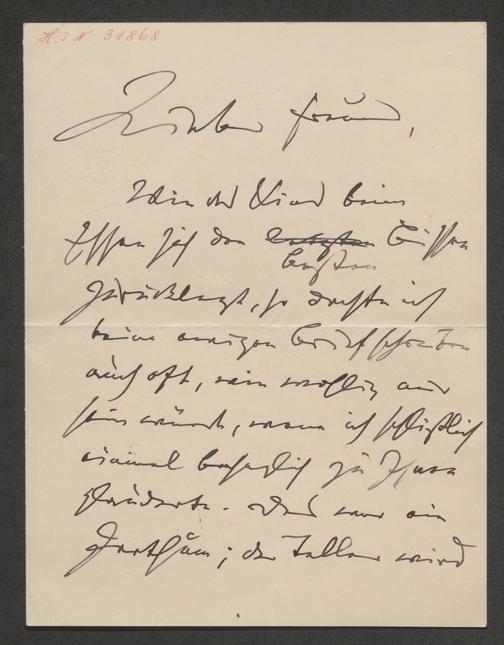 H. I. N. 31868
Lieber Freund,
Wie das Kind beim
Essen sich den letzten Bissen
besten
zurücklegt, so dachte ich
beim ewigen Briefschreiben
auch oft, wie wohlig mir
sein würde, wenn ich schließlich
einmal behaglich zu Ihnen
plauderte. Das war ein
Irrthum; der Teller wird